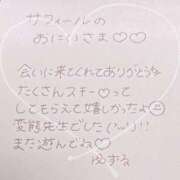 サフィールの
おにいさま♡♡
会いに来てくれてありがとう
たくさんスキーって
してもらえて嬉しかったよ
変態先生でした(ﾉ∀`)!!
また遊んでね♡
ゆずる